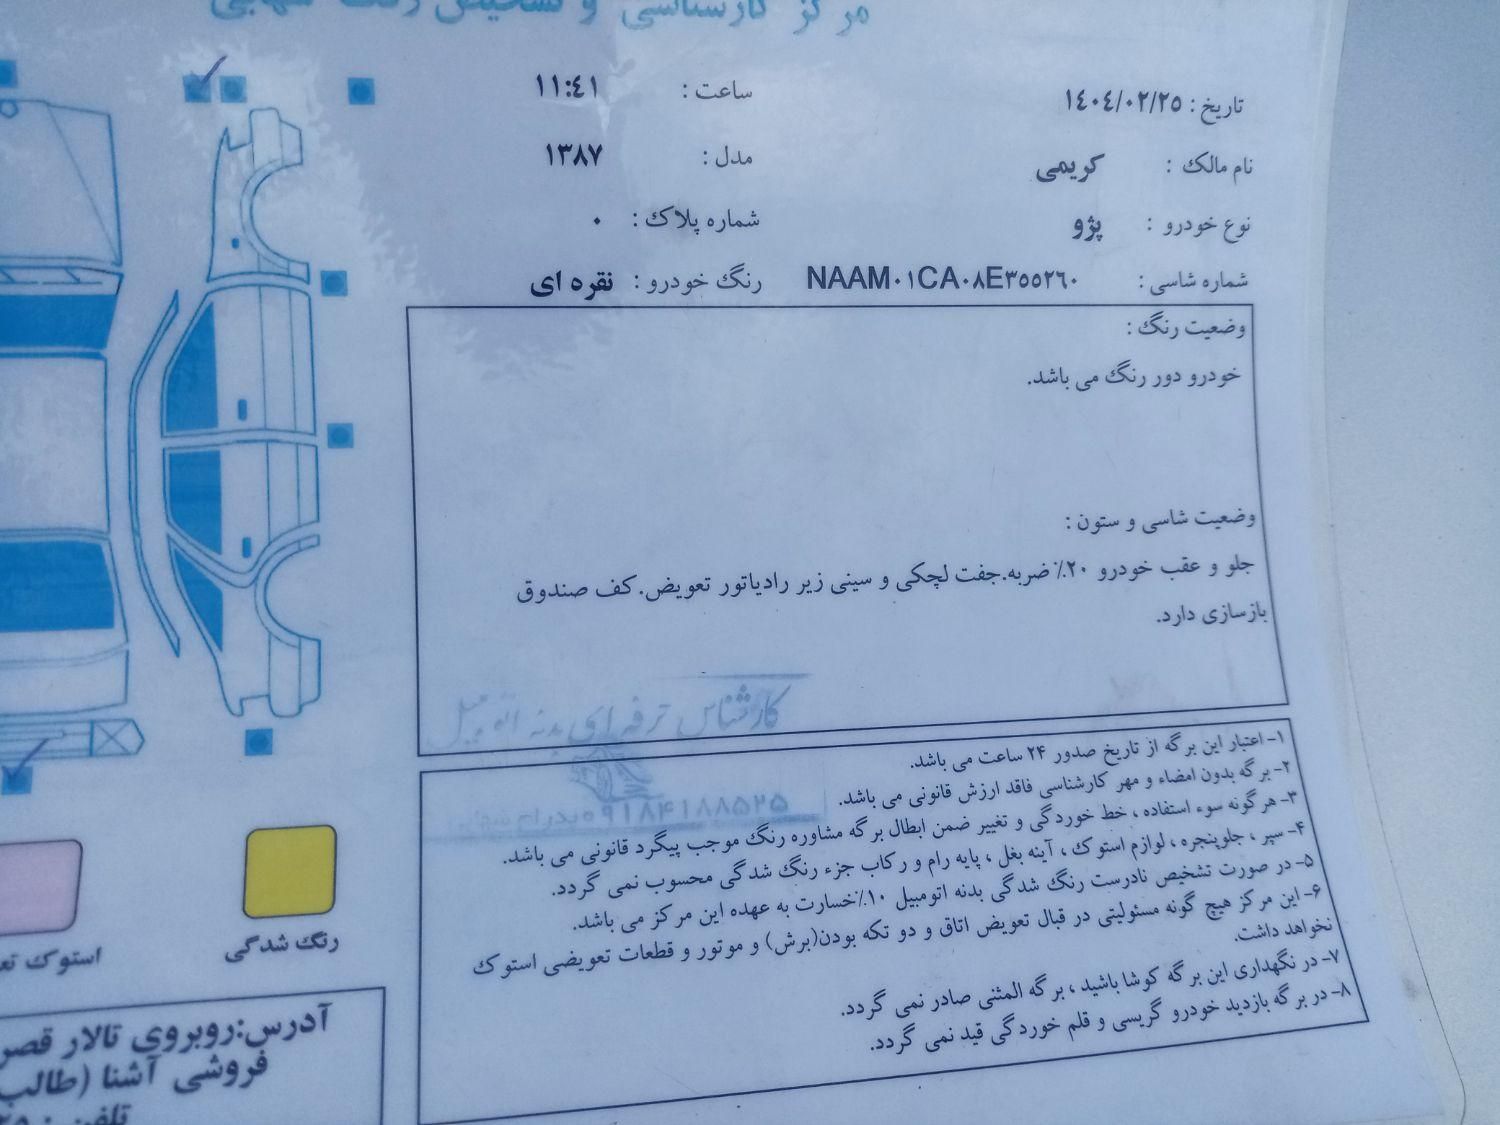 مرکز کارسناسی و تشخیص رنگ سهیی
تاریخ : ۱۴۰۴/۰۲/۲۵
ساعت : ۱۱:۴۱
نام مالک : کریمی
مدل : ۱۳۸۷
نوع خودرو : پژو
شماره پلاک : ۰
شماره شاسی : NAAM۰۱CA۰۸E۳۵۵۲۶۰
رنگ خودرو : نقره ای
وضعیت رنگ :
خودرو دور رنگ می باشد.
وضعیت شاسی و ستون :
جلو و عقب خودرو ۲۰٪ ضربه.جفت لچکی و سینی زیر رادیاتور تعویض.کف صندوق
بازسازی دارد.
کارشناس حرفه ای بدنه اتومبیل
۰۹۱۸۴۱۸۸۵۲۵
۱- اعتبار این برگه از تاریخ صدور ۲۴ ساعت می باشد.
۲- برگه بدون امضاء و مهر کارشناسی فاقد ارزش قانونی می باشد.
۳- هرگونه سوء استفاده ، خط خوردگی و تغییر ضمن ابطال برگه مشاوره رنگ موجب پیگرد قانونی می باشد.
۴- سپر ، جلوپنجره ، لوازم استوک ، آینه بغل ، پایه رام و رکاب جزء رنگ شدگی محسوب نمی گردد.
۵- در صورت تشخیص نادرست رنگ شدگی بدنه اتومبیل ۱۰٪خسارت به عهده این مرکز می باشد.
۶- این مرکز هیچ گونه مسئولیتی در قبال تعویض اتاق و دو تکه بودن(برش) و موتور و قطعات تعویضی استوک
نخواهد داشت.
۷- در نگهداری این برگه کوشا باشید ، برگه المثنی صادر نمی گردد.
۸- در برگه بازدید خودرو گریسی و قلم خوردگی قید نمی گردد.
رنگ شدگی
استوک
آدرس:روبروی تالار قصر
فروشی آشنا (طالب
تلفن :